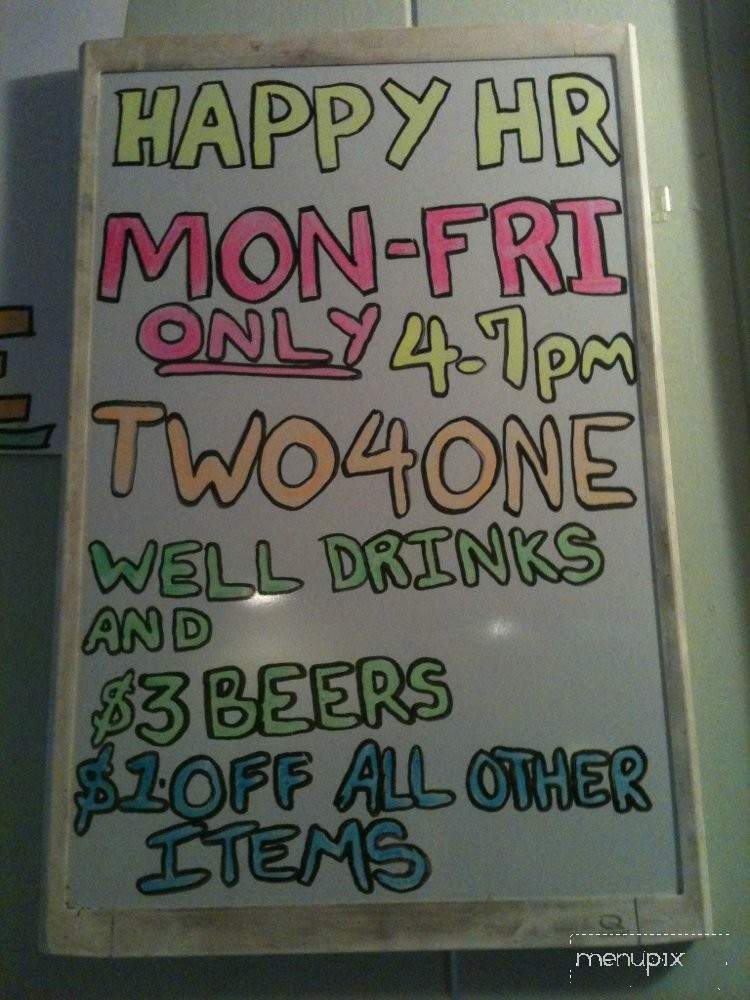 HAPPY HR
MON-FRI
ONLY 4-7pm
TWO4ONE
WELL DRINKS
AND
$3 BEERS
$1.OFF ALL OTHER
ITEMS
menupix